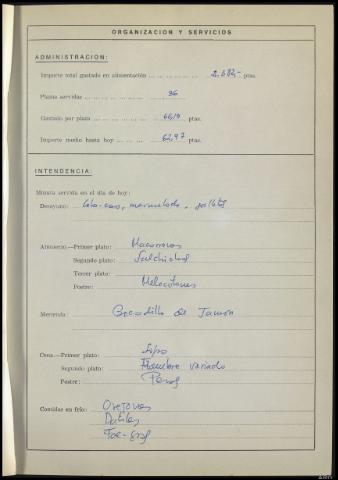 ORGANIZACION Y SERVICIOS
ADMINISTRACION:
Importe total gastado en alimentación ... 2.682,- ptas.
Plazas servidas ... 36
Gastado por plaza ... ptas.
Importe medio hasta hoy ... 62,97 ptas.
INTENDENCIA:
Minuta servida en el día de hoy:
Desayuno: Cola-cao, mermelada,
Almuerzo.—Primer plato: Macarrones
Segundo plato: Salchichas
Tercer plato:
Postre: Melocotones
Merienda: Bocadillo de Jamon
Cena.—Primer plato: Sopa
Segundo plato: Fiambre variado
Postre: Peras
Comidas en frío: Orejones
Datiles
Foe-gras